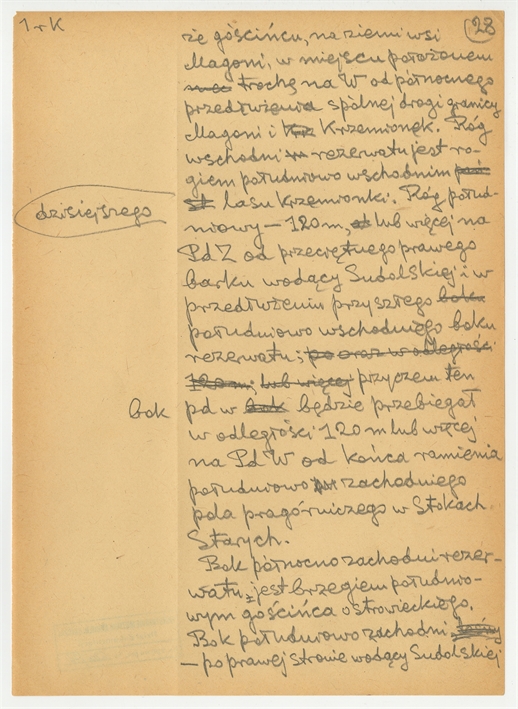 1 r K
28
że gościńcu, na ziemi wsi
Magoni, w miejscu położonem
trochę na W od północnego
przedłużenia spólnej drogi granicy
Magoni i Krzemionek. Róg
wschodni rezerwatu jest ro-
giem południowo wschodnim
dzisiejszego
lasu Krzemionki. Róg połud-
niowy – 120 m, lub więcej na
Pd Z od przeciętnego prawego
barku wodący Sudolskiej i w
przedłużeniu przyszłego boku
południowo wschodniego boku
rezerwatu; po oraz w odległości
120 m, lub więcej przyczem ten
bok
pd w bok będzie przebiegał
w odległości 120 m lub więcej
na Pd W od końca ramienia
południowo zachodniego
pola pragórniczego w Stokach
Starych.
Bok północno zachodni rezer-
watu, jest brzegiem południo-
wym gościńca ostrowieckiego.
Bok południowo zachodni
– po prawej stronie wodący Sudolskiej